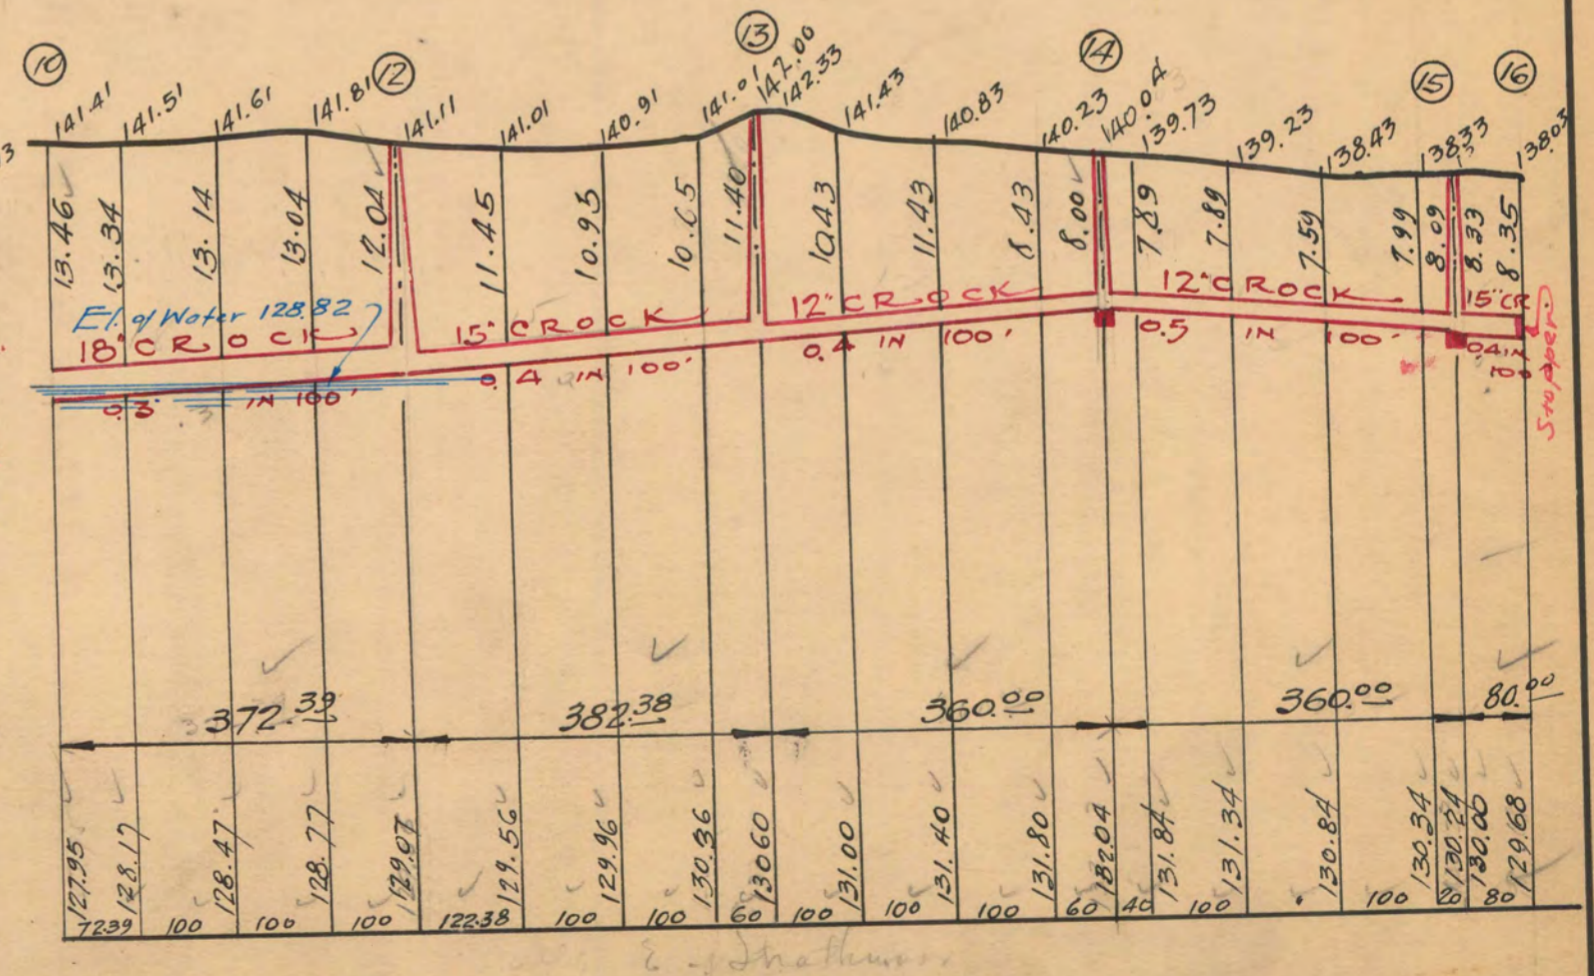 10 12 13 14 15 16
141.41 141.51 141.61 141.81 141.11 141.01 140.91 141.01 142.00 142.33 141.43 140.83 140.23 140.04 139.73 139.23 138.43 138.33 138.03
13.46 13.34 13.14 13.04 12.04 11.45 10.95 10.65 11.40 10.43 11.43 8.43 8.00 7.89 7.89 7.59 7.99 8.09 8.33 8.35
El. of Water 128.82
18" CROCK
15" CROCK
12" CROCK
12" CROCK
15" CR
Stopper
0.3 IN 100'
0.4 IN 100'
0.4 IN 100'
0.5 IN 100'
0.4 IN
100
372.39 382.38 360.00 360.00 80.00
127.95 128.17 128.47 128.77 129.07 129.56 129.96 130.36 130.60 131.00 131.40 131.80 132.04 131.84 131.34 130.84 130.34 130.24 130.00 129.68
72.39 100 100 100 122.38 100 100 60 100 100 100 60 40 100 100 20 80